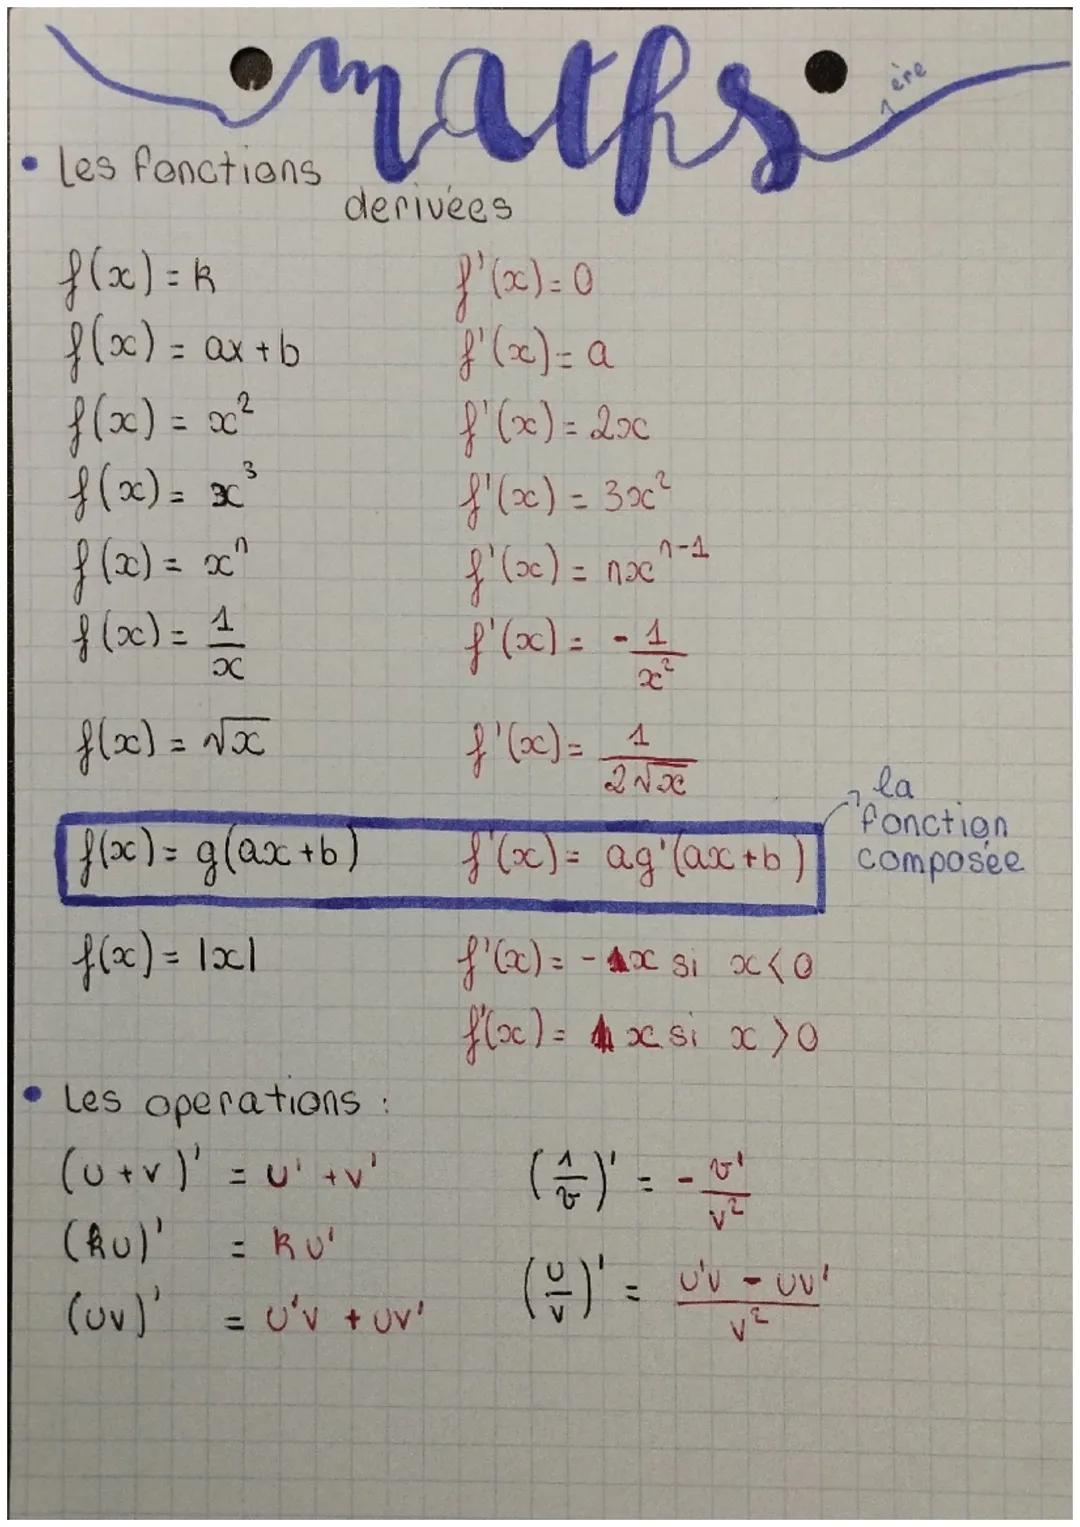 maths
1ère
• Les fonctions
derivées
f(x) = k f'(x) = 0
f(x) = ax + b f'(x) = a
f(x) = x² f'(x) = 2x
f(x) = x³ f'(x) = 3x²
f(x) = xⁿ f'(x) = nxⁿ⁻¹
f(x) = 1/x f'(x) = - 1/x²
f(x) = √x f'(x) = 1/(2√x)
la
fonction
composée
f(x) = g(ax + b) f'(x) = ag'(ax + b)
f(x) = |x| f'(x) = - 1x si x < 0
f'(x) = 1x si x > 0
• Les operations :
(u + v)' = u' + v' (1/v)' = - v'/v²
(ku)' = ku'
(uv)' = u'v + uv' (u/v)' = (u'v - uv')/v²